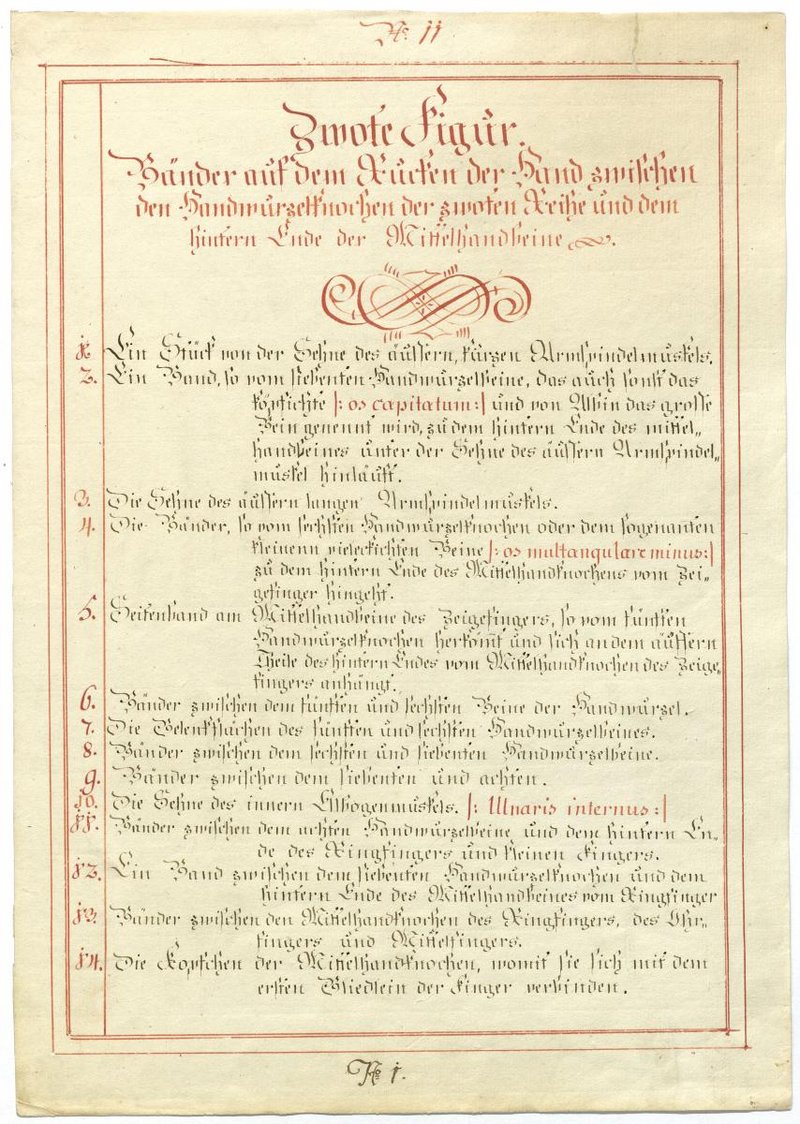 No. 11
Zwote Figur.
Bänder auf dem Rücken der Hand zwischen
den Handwurzelknochen der zwoten Reihe und dem
hintern Ende der Mittelhandbeine
1. Ein Stück von der Sehne des äussern, kürzen Armspindelmuskels.
2. Ein Band, so vom siebenten Handwurzelbeine, das auch sonst das
köpfichte |: os capitatum :| und von Albin das grosse
Bein genennt wird, zu dem hintern Ende des mittel„
handbeines unter der Sehne des äussern Armspindel„
muskel hinläuft.
3. Die Sehne des äussern langen Armspindelmuskels.
4. Die Bänder, so vom sechsten Handwurzelknochen oder dem sogenanten
kleinenn vieleckichten Beine |: os multangulare minus :|
zu dem hintern Ende des Mittelhandknochens vom Zei„
gefinger hingeht.
5. Seitenband am Mittelhandbeine des Zeigefingers, so vom fünften
Handwurzelknochen herkom̅t und sich an dem äussern
Theile des hintern Endes vom Mittelhandknochen des Zeige„
fingers anhängt.
6. Bänder zwischen dem fünften und sechsten Beine der Handwurzel.
7. Die Gelenkflächen des fünften und sechsten Handwurzelbeines.
8. Bänder zwischen dem sechsten und siebenten Handwurzelbeine.
9. Bänder zwischen dem siebenten und achten.
10. Die Sehne des innern Elbogenmuskels. |: Ulnaris internus :|
11. Bänder zwischen dem achten Handwurzelbeine und dem hintern En„
de des Ringfingers und kleinen Fingers.
12. Ein Band zwischen dem siebenten Handwurzelknochen und dem
hintern Ende des Mittelhandbeines vom Ringfinger
13. Bänder zwischen den Mittelhandknochen des Ringfingers, des Ohr„
fingers und Mittelfingers.
14. Die Köpfchen der Mittelhandknochen, womit sie sich mit dem
ersten Gliedlein der Finger verbinden.
No. 1.